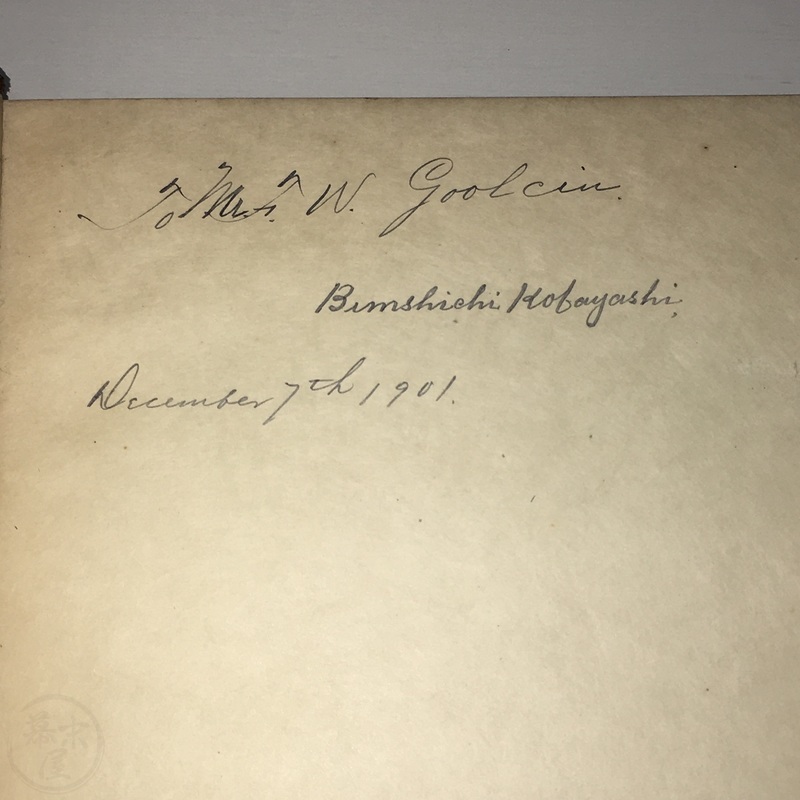 To Mr. F. W. Goolcin.
Bunshichi Kobayashi,
December 7th 1901.